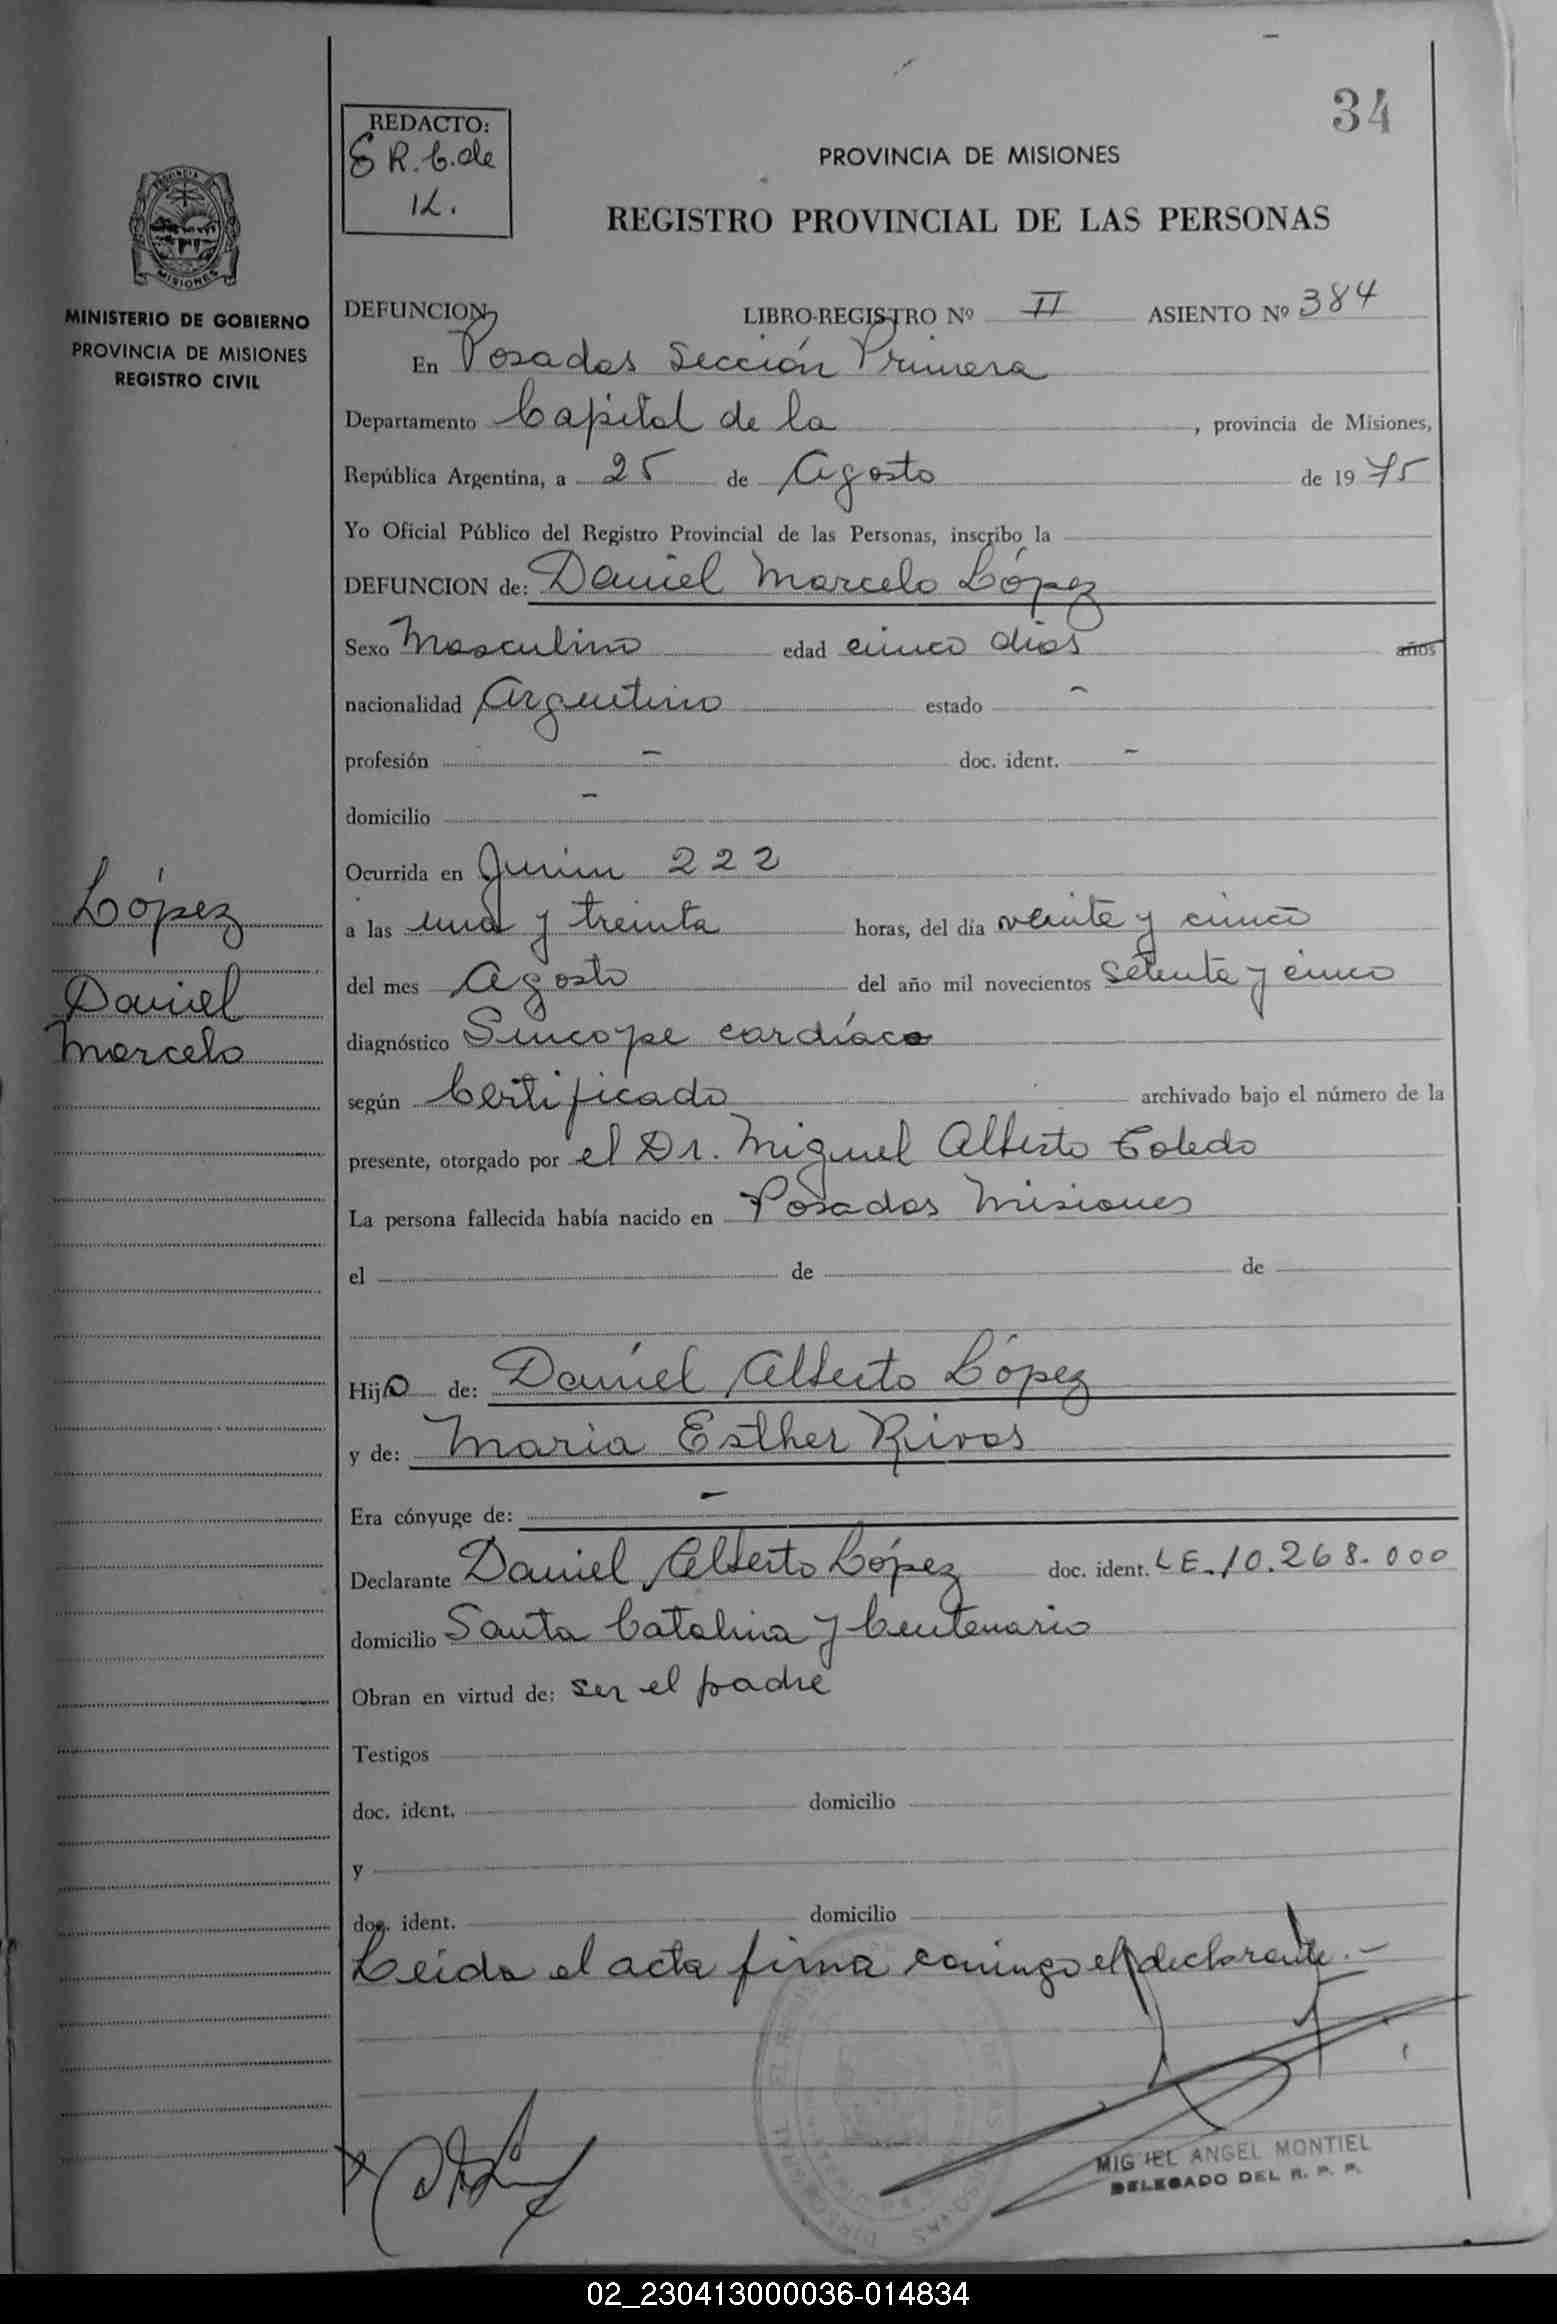 34
REDACTO:
PROVINCIA DE MISIONES
REGISTRO PROVINCIAL DE LAS PERSONAS
PROVINCIA
MISIONES
MINISTERIO DE GOBIERNO
PROVINCIA DE MISIONES
REGISTRO CIVIL
DEFUNCION LIBRO-REGISTRO Nº II ASIENTO Nº 384
En Posadas Sección Primera
Departamento Capital de la, provincia de Misiones,
República Argentina, a 25 de Agosto de 1975
Yo Oficial Público del Registro Provincial de las Personas, inscribo la
DEFUNCION de: Daniel Marcelo López
Sexo Masculino edad cinco dias años
nacionalidad Argentino estado -
profesión - doc. ident. -
domicilio -
Ocurrida en Junin 222
López
a las una y treinta horas, del día veinte y cinco
Daniel
del mes Agosto del año mil novecientos setenta y cinco
Marcelo
diagnóstico Sincope cardíaco
según Certificado archivado bajo el número de la
presente, otorgado por el Dr. Miguel Alberto Toledo
La persona fallecida había nacido en Posadas Misiones
el de de
Hijo de: Daniel Alberto López
y de: Maria Esther Rivas
Era cónyuge de: -
Declarante Daniel Alberto López doc. ident. LE. 10.268.000
domicilio Santa Catalina y Centenario
Obran en virtud de: ser el padre
Testigos
doc. ident. domicilio
y
doc. ident. domicilio
Leida el acta firma conmigo el declarante.-
MIGUEL ANGEL MONTIEL
DELEGADO DEL R. P. P.
02_230413000036-014834